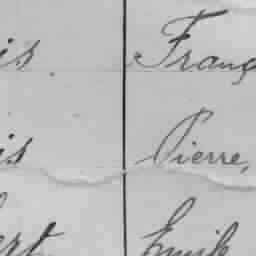 is. Franç
is Pierre,
ert Emile